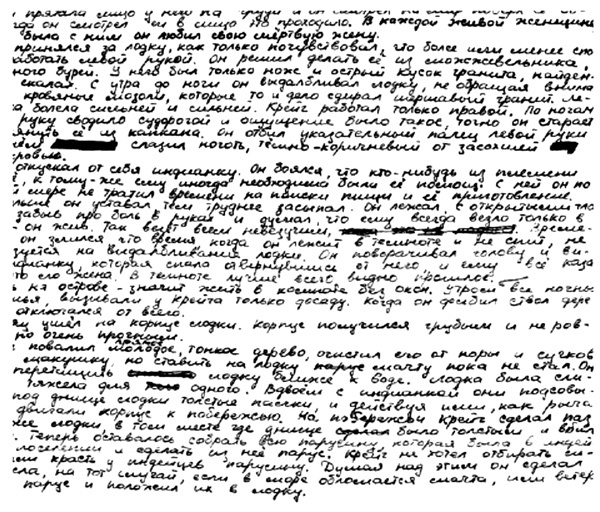 прятала лицо у него на груди и он смотрел
да он смотрел ей в лицо это проходило. В каждой живой женщине
было с ним он любил свою мёртвую жену.
принялся за лодку, как только почувствовал, что более или менее спо
работать левой рукой. Он решил делать её из можжевельника,
ного бурей. У него был только нож и острый кусок гранита, найден-
скалах. С утра до ночи он выдалбливал лодку, не обращая внима
кровяные мозоли, которые то и дело сдирал шершавый гранит. Ле-
ка болела сильней и сильней. Крейг работал только правой. По ночам
руку сводило судорогой и ощущение было такое, точно он старает
януть её из капкана. Он отбил указательный палец левой руки
слазил ноготь, тёмно-коричневый от засохшей
кровью.
отпускал от себя индианку. Он боялся, что кто-нибудь из племени
, к тому-же ему иногда необходима была её помощь. С ней он по
мере не тратил времени на поиски пищи и её приготовление.
льше он уставал тем труднее засыпал. Он лежал с открытыми гла
забыв про боль в руках и думал, что ему всегда везло только в
он жив. Так везёт всем невезучим, Време-
он злился что время когда он лежит в темноте и не спит, не
зуется на выдалбливание лодки. Он поворачивал голову и ви-
дианку, которая спала отвернувшись от него и ему всё каза
то его жена. В темноте лучше всего видно прошлое.
ь на острове - значит жить в комнате без окон. Утром все ночны
лья, вызывали у Крейга только досаду. Когда он долбил ствол дере
отключался от всего.
ли ушёл на корпус лодки. Корпус получился грубым и не ров-
но очень прочным.
повалил молодое, прямое тонкое дерево, очистил его от коры и сучков
макушку, но ставить на лодку парус мачту пока не стал. Он
перетащить лодку ближе к воде. Лодка была сли-
тяжела для одного. Вдвоём с индианкой они подсовы-
под днище лодки толстые палки и действуя ими, как рыча
двигали корпус к побережью. На побережьи Крейг сделал паз
же лодки в том месте где днище было толстым и вбил
. Теперь оставалось собрать всю парусину, которая была в индей
поселении и сделать из неё парус. Крейг не хотел отбирать си-
ли красть у индейцев парусину. Думая над этим он сделал
сла, на тот случай, если в море обломается мачта, или ветер
парус и положил их в лодку.